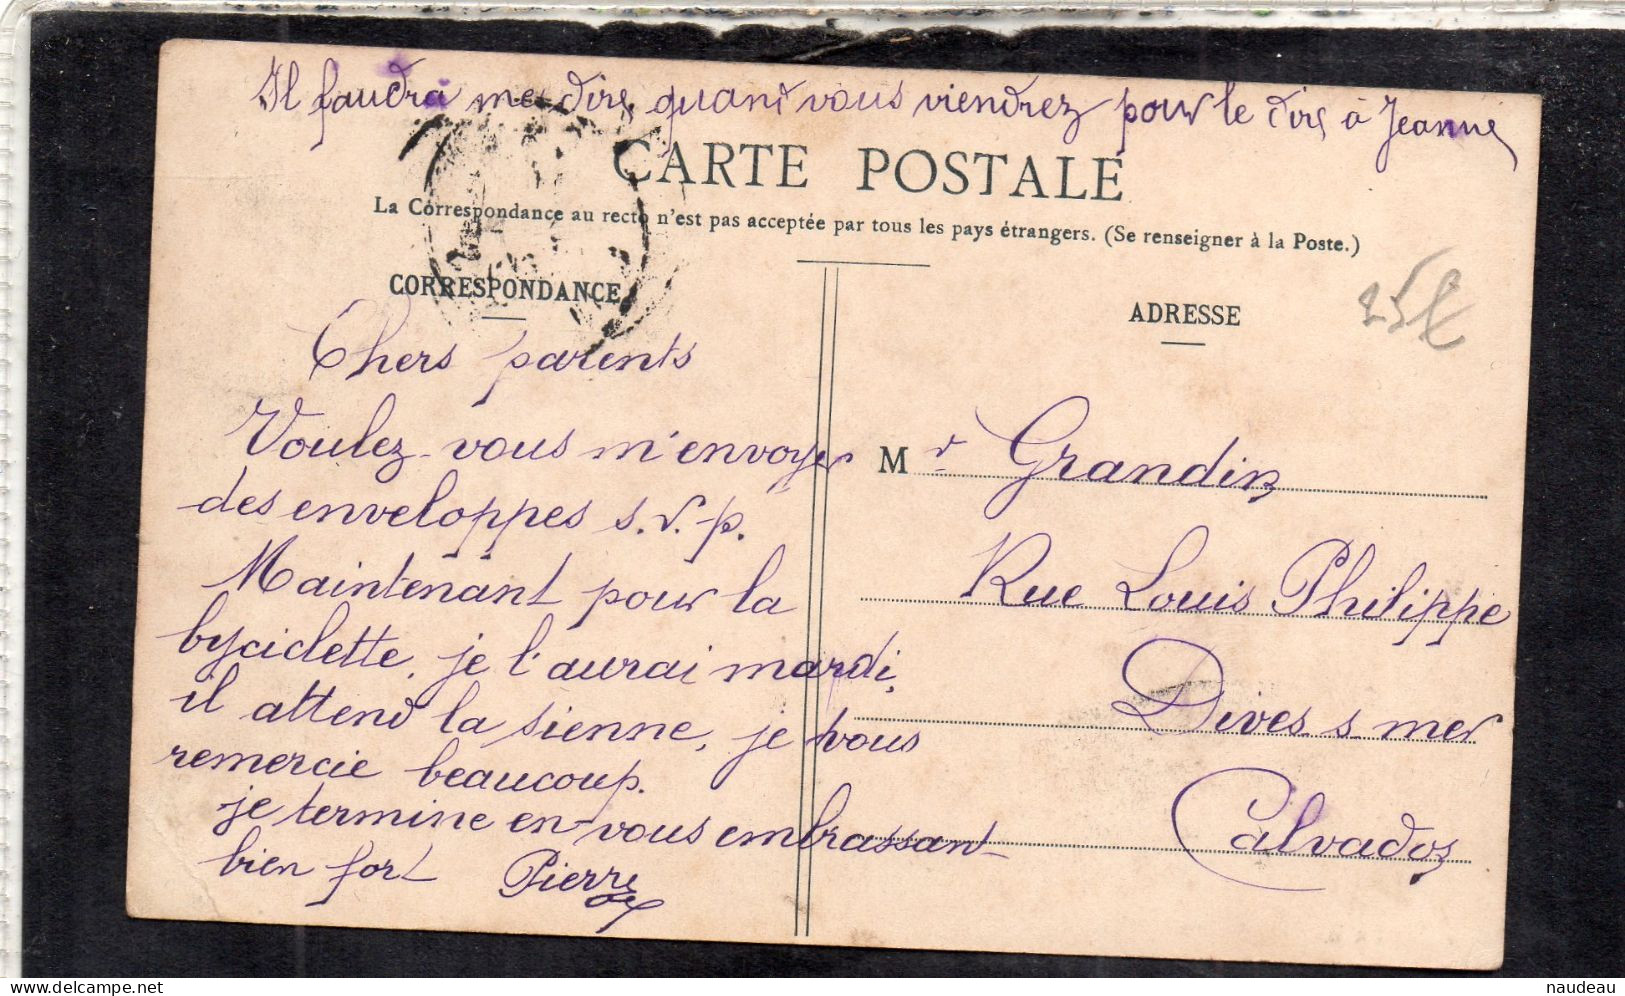 Il faudra me dire quand vous viendrez pour le dire à Jeanne
CARTE POSTALE
La Correspondance au recto n'est pas acceptée par tous les pays étrangers. (Se renseigner à la Poste.)
CORRESPONDANCE
Chers parents
Voulez-vous m'envoyer
des enveloppes s.v.p.
Maintenant pour la
byciclette, je l'aurai mardi,
il attend la sienne, je vous
remercie beaucoup.
je termine en vous embrassant
bien fort Pierre
ADRESSE
25€
Mr Grandin
Rue Louis Philippe
Dives s mer
Calvados
naudeau